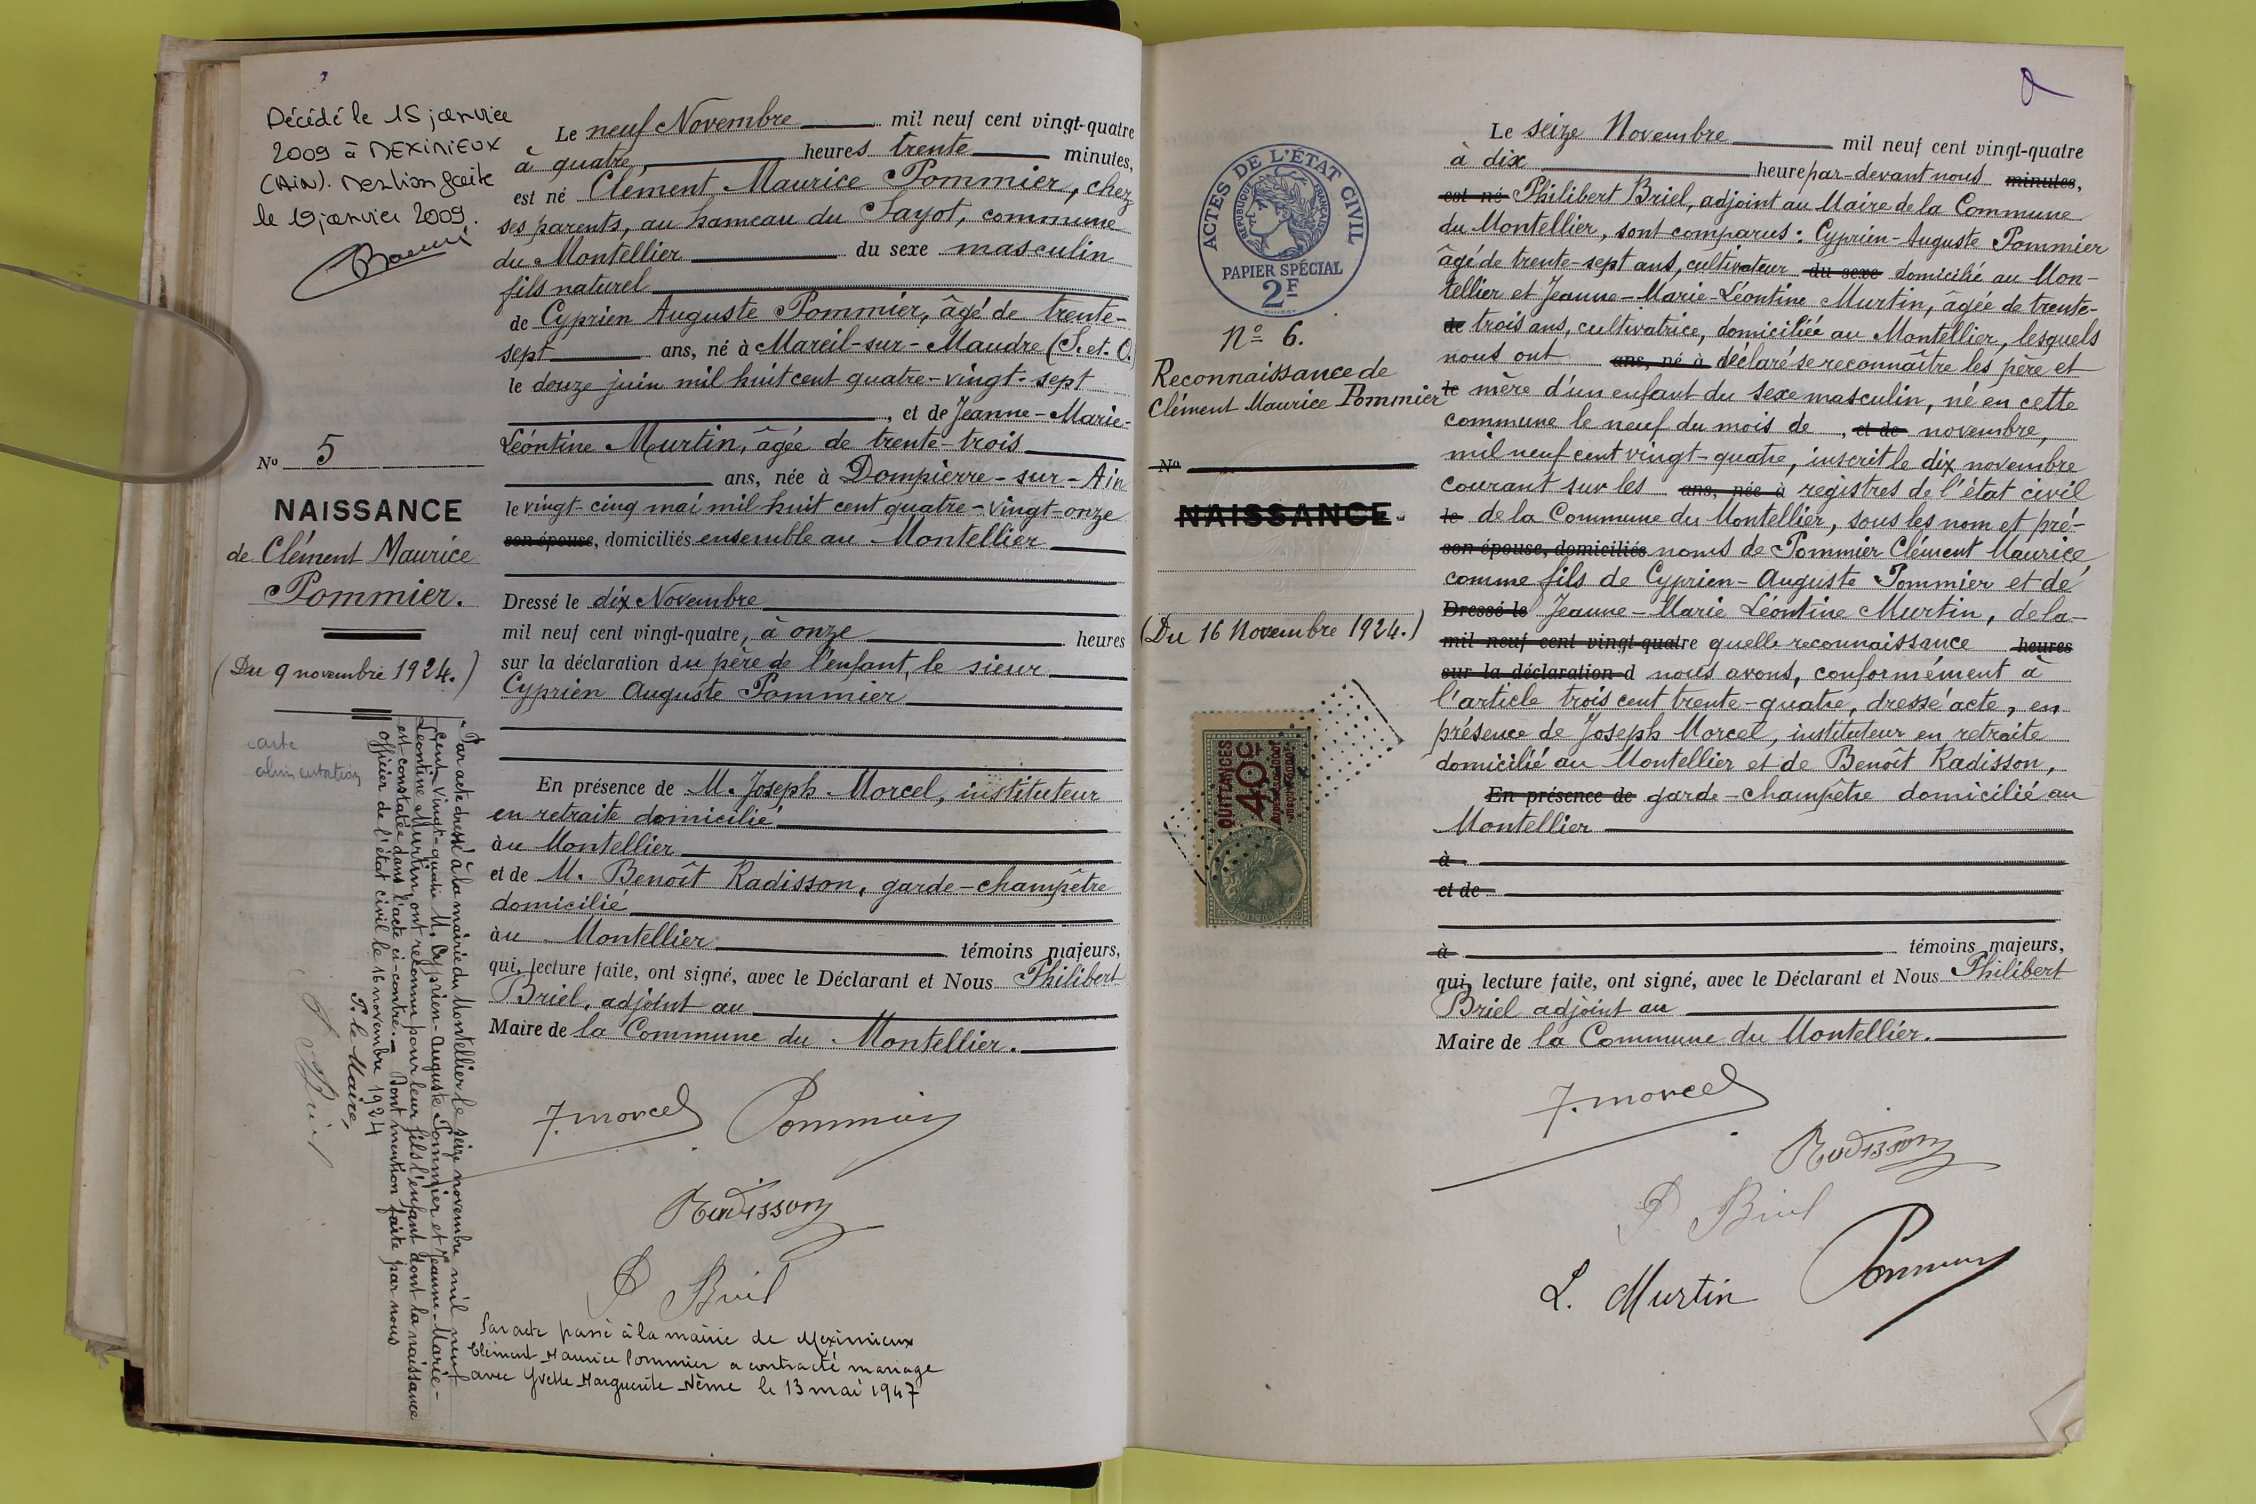 Décédé le 15 janvier
2009 à MEXIMIEUX
(AiN). Mention faite
le 19 janvier 2009.
Le neuf Novembre mil neuf cent vingt-quatre
à quatre heures trente minutes,
est né Clément Maurice Pommier, chez
ses parents, au hameau du Sayot, commune
du Montellier du sexe masculin
fils naturel
de Cyprien Auguste Pommier, âgé de trente-
sept ans, né à Mareil-sur-Maudre (S. et. O.)
le douze juin mil huit cent quatre-vingt-sept
, et de Jeanne-Marie-
Léontine Murtin, âgée de trente-trois
ans, née à Dompierre-sur-Ain
le vingt-cinq mai mil huit cent quatre-vingt-onze
son épouse, domiciliés ensemble au Montellier
Dressé le dix Novembre
mil neuf cent vingt-quatre, à onze heures
sur la déclaration du père de l'enfant, le sieur
Cyprien Auguste Pommier
En présence de M. Joseph Morcel, instituteur
en retraite domicilié
àu Montellier
et de M. Benoît Radisson, garde-champêtre
domicilié
àu Montellier témoins majeurs,
qui, lecture faite, ont signé, avec le Déclarant et Nous Philibert
Briel, adjoint au
Maire de la Commune du Montellier.
J. Morcel Pommier
Radisson
P. Briel
Par acte passé à la mairie de Meximieux
Clément Maurice Pommier a contracté mariage
avec Yvette Marguerite Nème le 13 mai 1947
No 5
NAISSANCE
de Clément Maurice
Pommier.
(Du 9 novembre 1924.)
carte
alimentation
Par acte dressé à la mairie du Montellier le seize novembre mil neuf
cent vingt-quatre M. Cyprien-Auguste Pommier et Jeanne-Marie-
Léontine Murtin, ont reconnu pour leur fils l'enfant dont la naissance
est constatée dans l'acte ci-contre. - Dont mention faite par nous
officier de l'état civil le 16 novembre 1924
P. le Maire,
P. Briel
ACTES DE L'ÉTAT CIVIL
RÉPUBLIQUE FRANÇAISE
PAPIER SPÉCIAL
2F
No 6.
Reconnaissance de
Clément Maurice Pommier
No
NAISSANCE
(Du 16 Novembre 1924.)
QUITTANCES
40c
Le seize Novembre mil neuf cent vingt-quatre
à dix heure par-devant nous minutes,
est né Philibert Briel, adjoint au Maire de la Commune
du Montellier, sont comparus: Cyprien-Auguste Pommier
âgé de trente-sept ans, cultivateur du sexe domicilié au Mon-
tellier et Jeanne-Marie-Léontine Murtin, âgée de trente-
de trois ans, cultivatrice, domiciliée au Montellier, lesquels
nous ont ans, né à déclaré se reconnaître les père et
le mère d'un enfant du sexe masculin, né en cette
commune le neuf du mois de , et de novembre,
mil neuf cent vingt-quatre, inscrit le dix novembre
courant sur les ans, née à registres de l'état civil
le de la Commune du Montellier, sous les nom et pré-
son épouse, domiciliés noms de Pommier Clément Maurice,
comme fils de Cyprien-Auguste Pommier et de
Dressé le Jeanne-Marie Léontine Murtin, de la-
mil neuf cent vingt-quatre quelle reconnaissance heures
sur la déclaration d nous avons, conformément à
l'article trois cent trente-quatre, dressé acte, en
présence de Joseph Morcel, instituteur en retraite
domicilié au Montellier et de Benoît Radisson,
En présence de garde-champêtre domicilié au
Montellier
à
et de
à témoins majeurs,
qui, lecture faite, ont signé, avec le Déclarant et Nous Philibert
Briel adjoint au
Maire de la Commune du Montellier.
J. Morcel
Radisson
P. Briel
L. Murtin Pommier